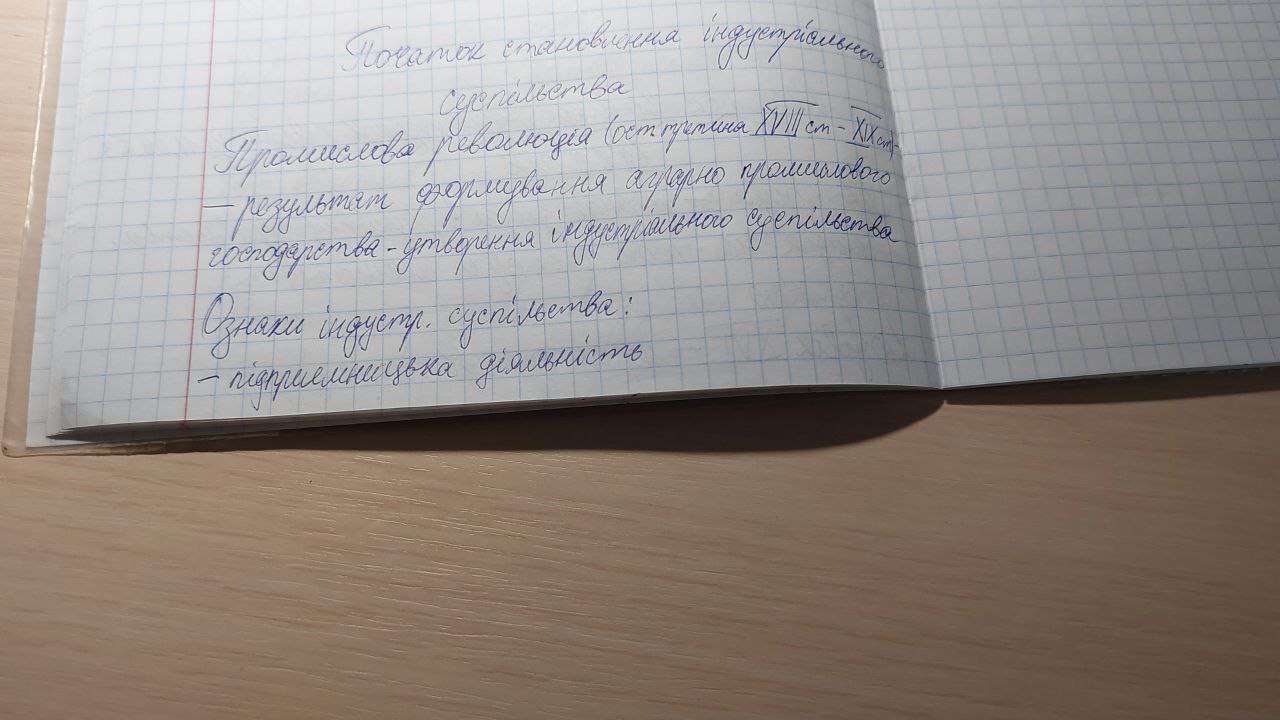 Початок становлення індустріального
суспільства
Промислова революція (ост третина XVIII ст - XIX ст) -
- результат формування аграрно промислового
господарства - утворення індустріального суспільства
Ознаки індустр. суспільства:
- підприємницька діяльність